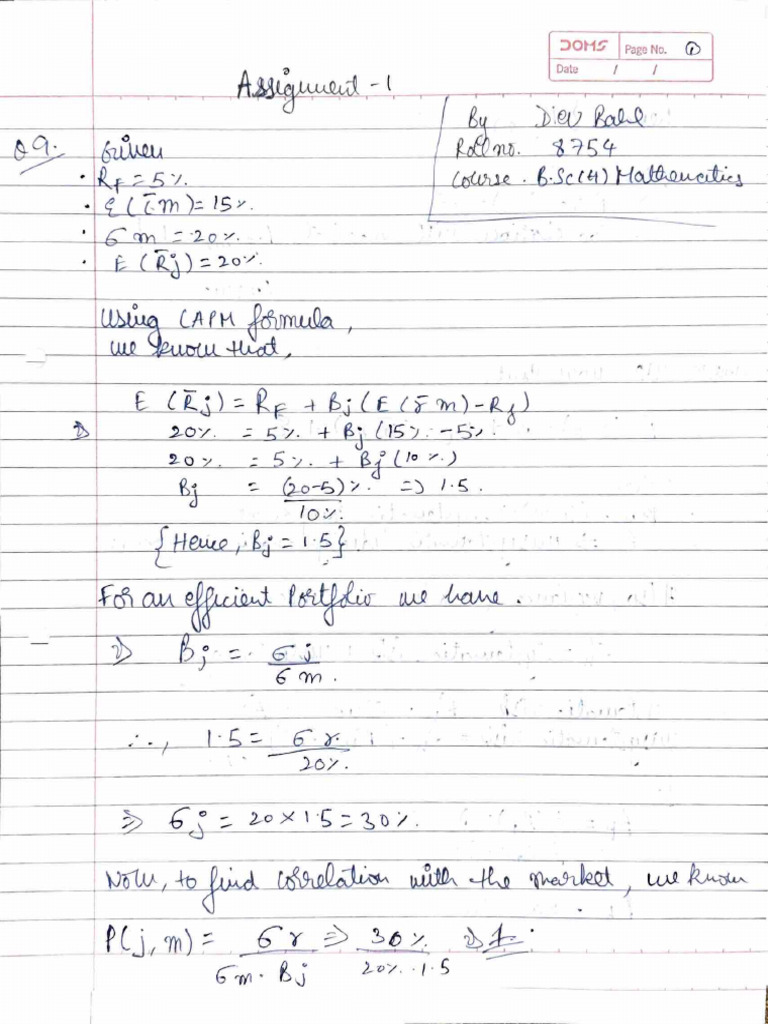 DOMS Page No. 1
Date / /
Assignment - 1
By Dev
Roll no. 8754
Course. B.Sc(H) Mathematics
Q9. Given
• RF = 5%.
• E(r̄m) = 15%.
• σm = 20%.
• E(R̄j) = 20%.
Using CAPM formula,
we know that,
E(R̄j) = RF + Bj(E(r̄m) - Rf)
⇒ 20% = 5% + Bj(15% - 5%.
20% = 5% + Bj(10%)
Bj = (20-5)% => 1.5.
10%
{Hence, Bj = 1.5}
For an efficient Portfolio we have.
⇒ Bj = σj
σm.
∴, 1.5 = σr
20%.
⇒ σj = 20 × 1.5 = 30%.
Now, to find correlation with the market, we know
P(j,m) = σr ⇒ 30% ⇒ 1.
σm. Bj 20%. 1.5